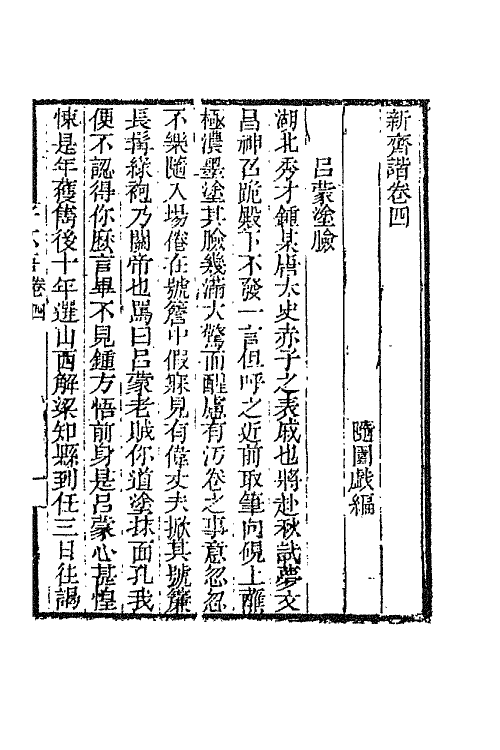 新齊諧卷四
隨園戲編
呂蒙塗臉
湖北秀才鍾某唐太史赤子之表戚也將赴秋試夢文
昌神召跪殿下不發一言但呼之近前取筆向硯上蘸
極濃墨塗其臉幾滿大驚而醒慮有汚卷之事意忽忽
不樂隨入場倦在號簷中假寐見有偉丈夫掀其號簾
長髯綠袍乃關帝也罵曰呂蒙老賊你道塗抹面孔我
便不認得你麽言畢不見鍾方悟前身是呂蒙心甚惶
悚是年獲售後十年選山西解梁知縣到任三日往謁
子不語卷四
一